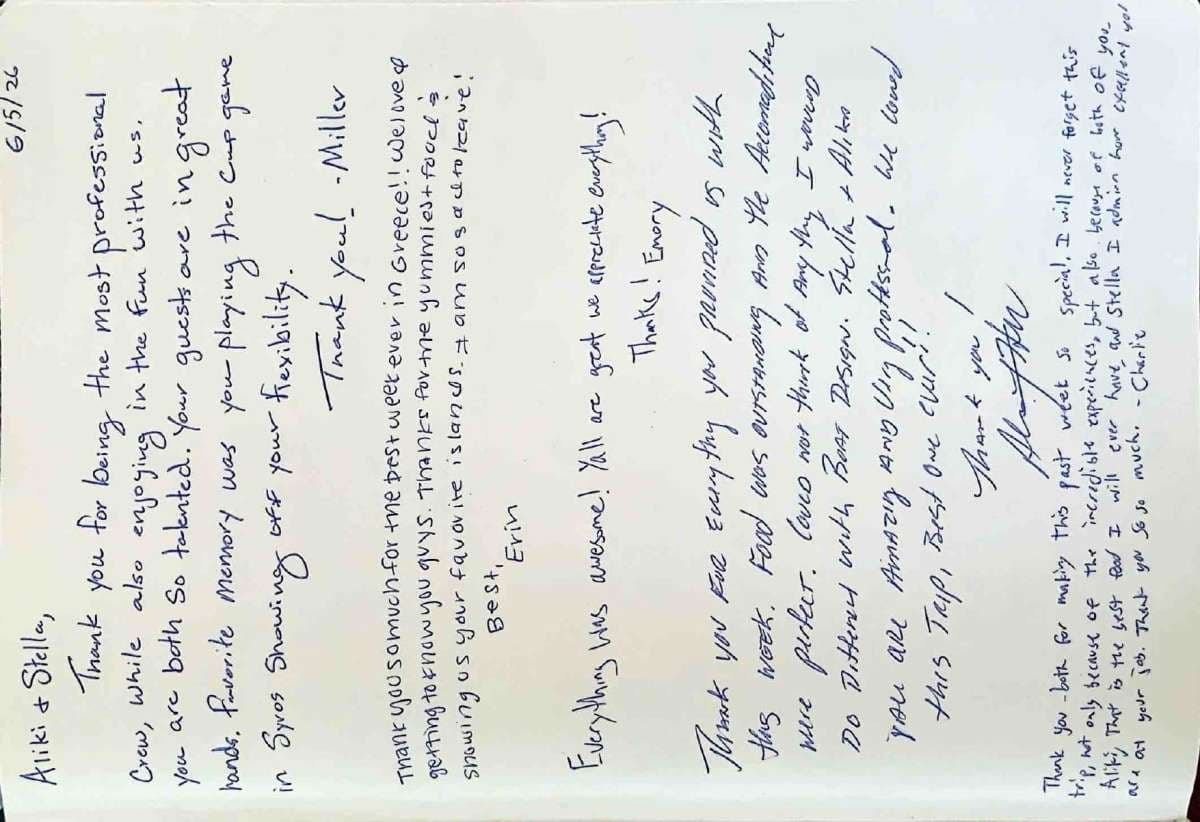 6/5/26
Aliki & Stella,
Thank you for being the most professional
Crew, while also enjoying in the fun with us.
you are both so talented. Your guests are in great
hands. Favorite memory was you playing the cup game
in Syros showing off your flexibility.
Thank you! -Miller
Thank you so much for the best week ever in Greece!! We loved
getting to know you guys. Thanks for the yummiest food &
showing us your favorite islands. I am so sad to leave!
Best,
Erin
Everything was awesome! Yall are great we appreciate everything!
Thanks! Emory
Thank you for everything you provided us with
this week. Food was outstanding and the Accomodations
were perfect. Could not think of anything I would
do Different with Boat Design. Stella & Alika
you are Amazing and very professional. We loved
this Trip, Best one ever!!
Thank you!
Thank you both for making this past week so special. I will never forget this
trip, not only because of the incredible experiences, but also because of both of you.
Aliki, that is the best food I will ever have, and Stella I admire how excellent you
are at your job. Thank you so so much. - Charlie